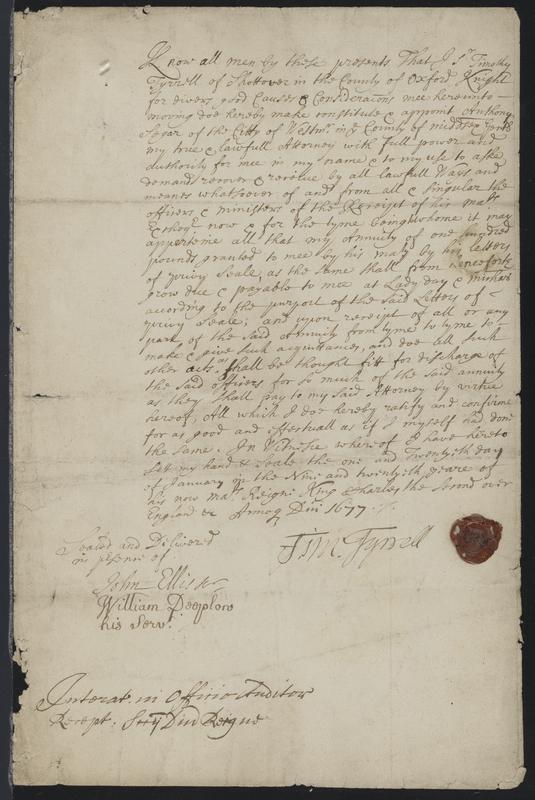 Know all men by these presents That I Sr. Timothy
Tyrrell of Shottover in the County of Oxford Knight
for divers good Causes & Consideracons mee hereunto
moving doe hereby make constitute & appoint Anthony
Segar of the Citty of Westmr. in ye County of Middsex Gent
my true & lawfull Attorney with full power and
authority for mee in my name & to my use to aske
demand recover & receive by all lawfull Ways and
meanes whatsoever of and from all & singular the
officers & ministers of the Receipt of his mats
Excheqr. now & for the tyme being whome it may
apperteine all that my Annuity of one hundred
pounds granted to mee by his maty by his letters
of privy Seale, as the same shall from henceforth
grow due & payable to mee at Lady day & michas
according to the purport of the said Letters of
privy Seale; and upon receipt of all or any
part of the said Annuity from tyme to tyme to
make & give such acquittances, and doe all such
other acts shall be thought fitt for discharge of
the said officers for so much of the said annuity
as they shall pay to my said Attorney by virtue
hereof, All which I doe hereby ratify and confirme
for as good and effectuall as if I myself had done
the same. In Witnesse whereof I have hereto
set my hand & Seale the one and Twentyeth day
of January in the Nine and twentyeth yeare of
his now mats. Reigne King Charles the Second over
England &c Annoq Dni 1677
Sealed and Delivered
in psence of
Tim. Tyrrell
John Ellis
William Deeplow
his Servt.
Intrat. in Officio Auditor
Recept.